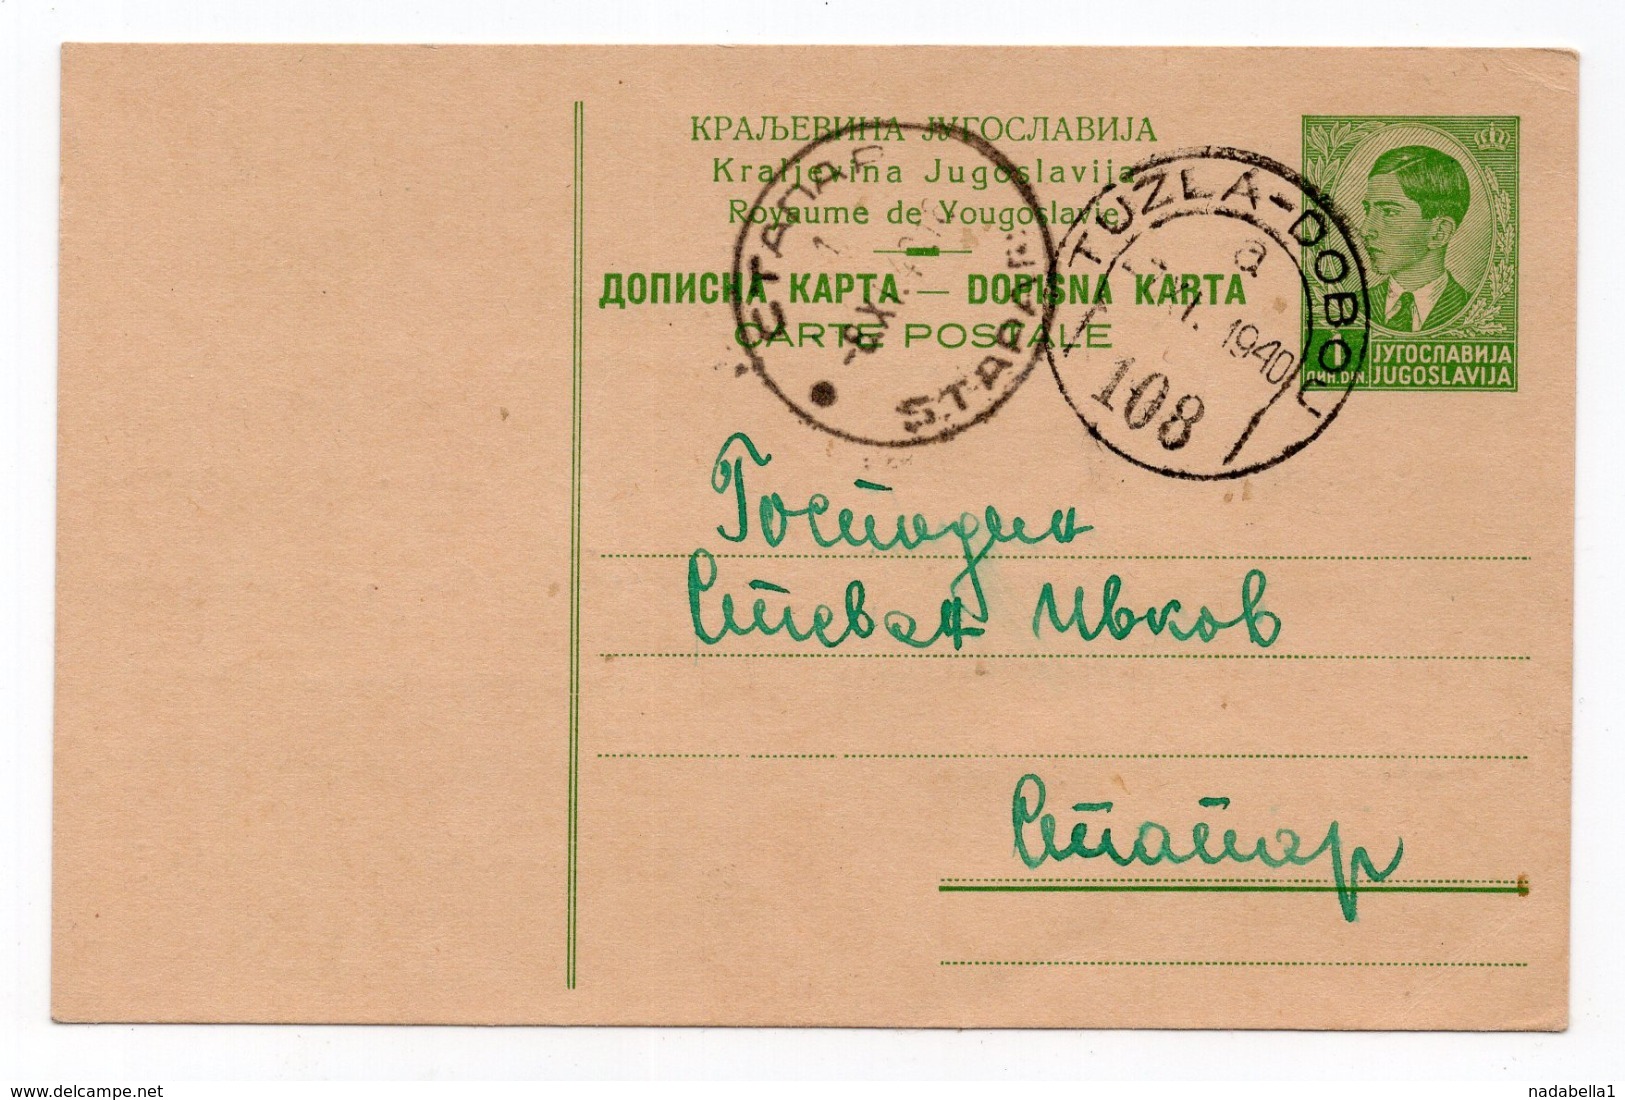 КРАЉЕВИНА ЈУГОСЛАВИЈА
Kraljevina Jugoslavija
Royaume de Yougoslavie
ДОПИСНА КАРТА — DOPISNA KARTA
CARTE POSTALE
СТАПАР
-8.XI.40
STAPAR
TUZLA-DOBOJ
a
XI. 1940
108
1
ДИН. DIN.
ЈУГОСЛАВИЈА
JUGOSLAVIJA
Господин
Стеван Ивков
Стапар
www.delcampe.net
nadabella1